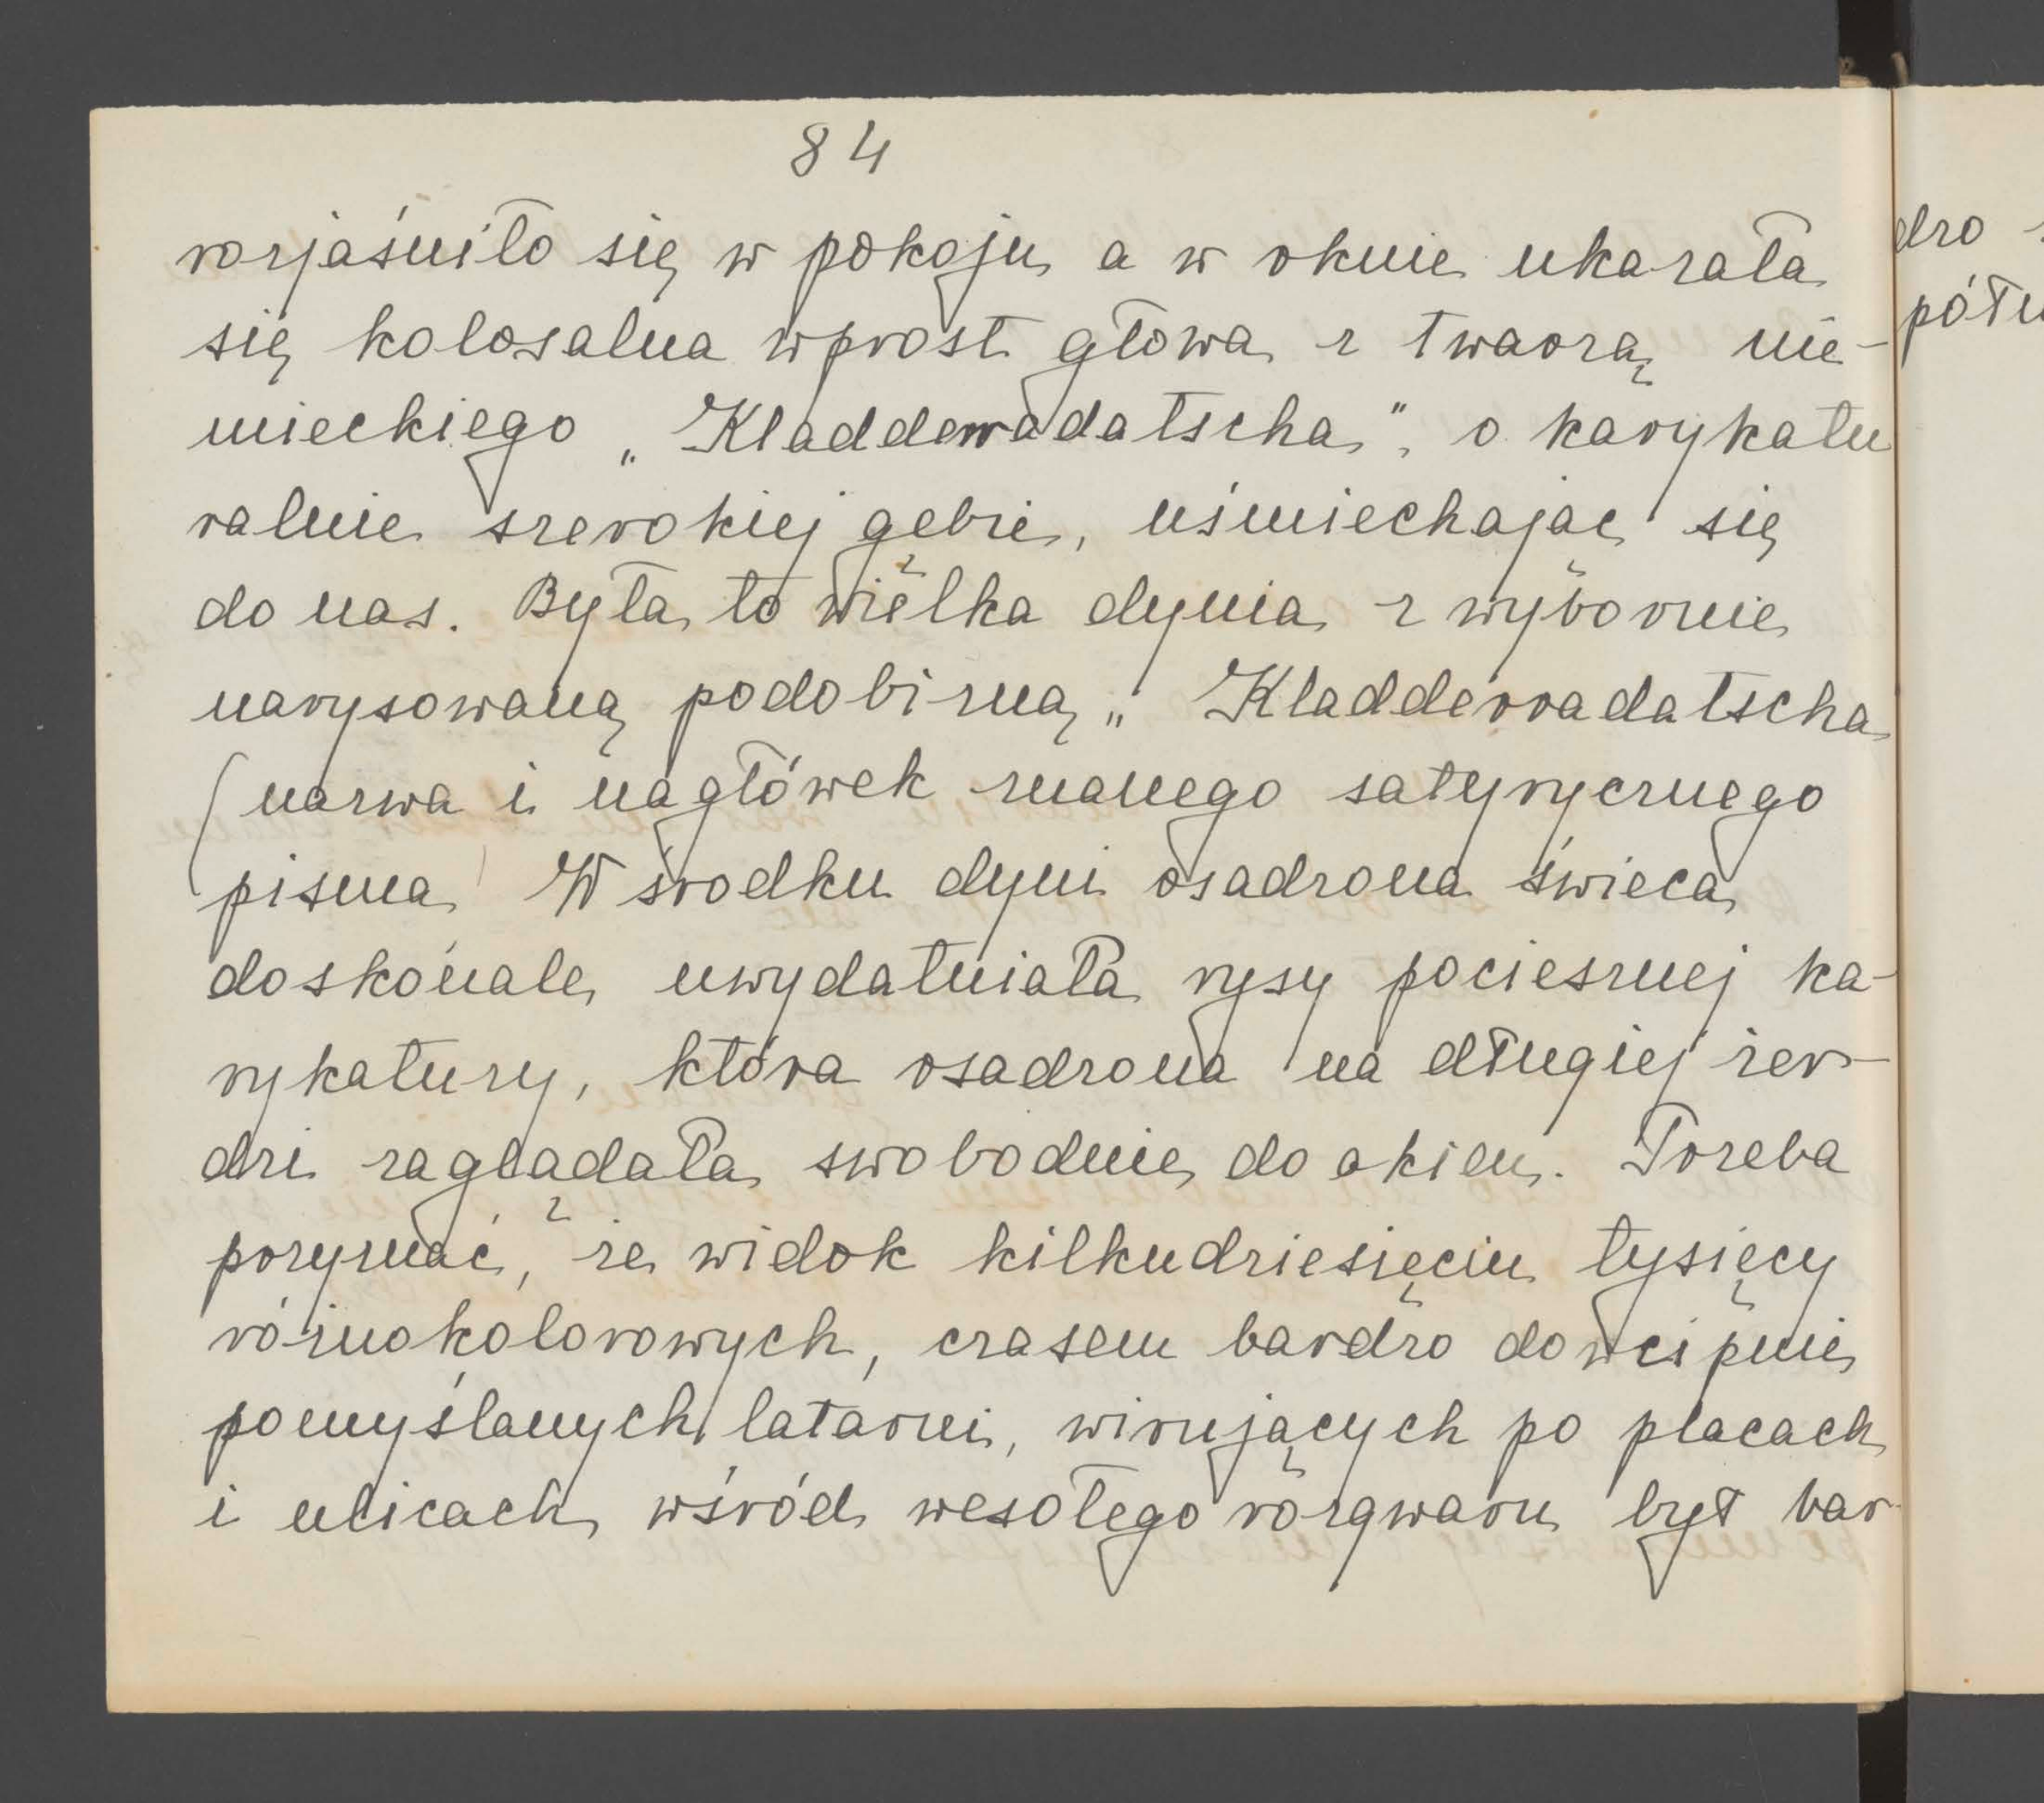 84
rozjaśniło się w pokoju a w oknie ukazała
się kolosalna wprost głowa z twarzą nie-
mieckiego „Kladderradatscha", o karykatu
ralnie szerokiej gębie, uśmiechając się
do nas. Była to wielka dynia z wybornie
narysowaną podobizną „Kladderradatscha
(nazwa i nagłówek znanego satyrycznego
pisma) W środku dyni osadzona świeca
doskonale uwydatniała rysy pociesznej ka-
rykatury, która osadzona na długiej żer-
dzi zaglądała swobodnie do okien. Trzeba
przyznać, że widok kilkudziesięciu tysięcy
różnokolorowych, czasem bardzo dowcipnie
pomyślanych latarni, wirujących po placach
i ulicach wśród wesołego rozgwaru był bar
dzo